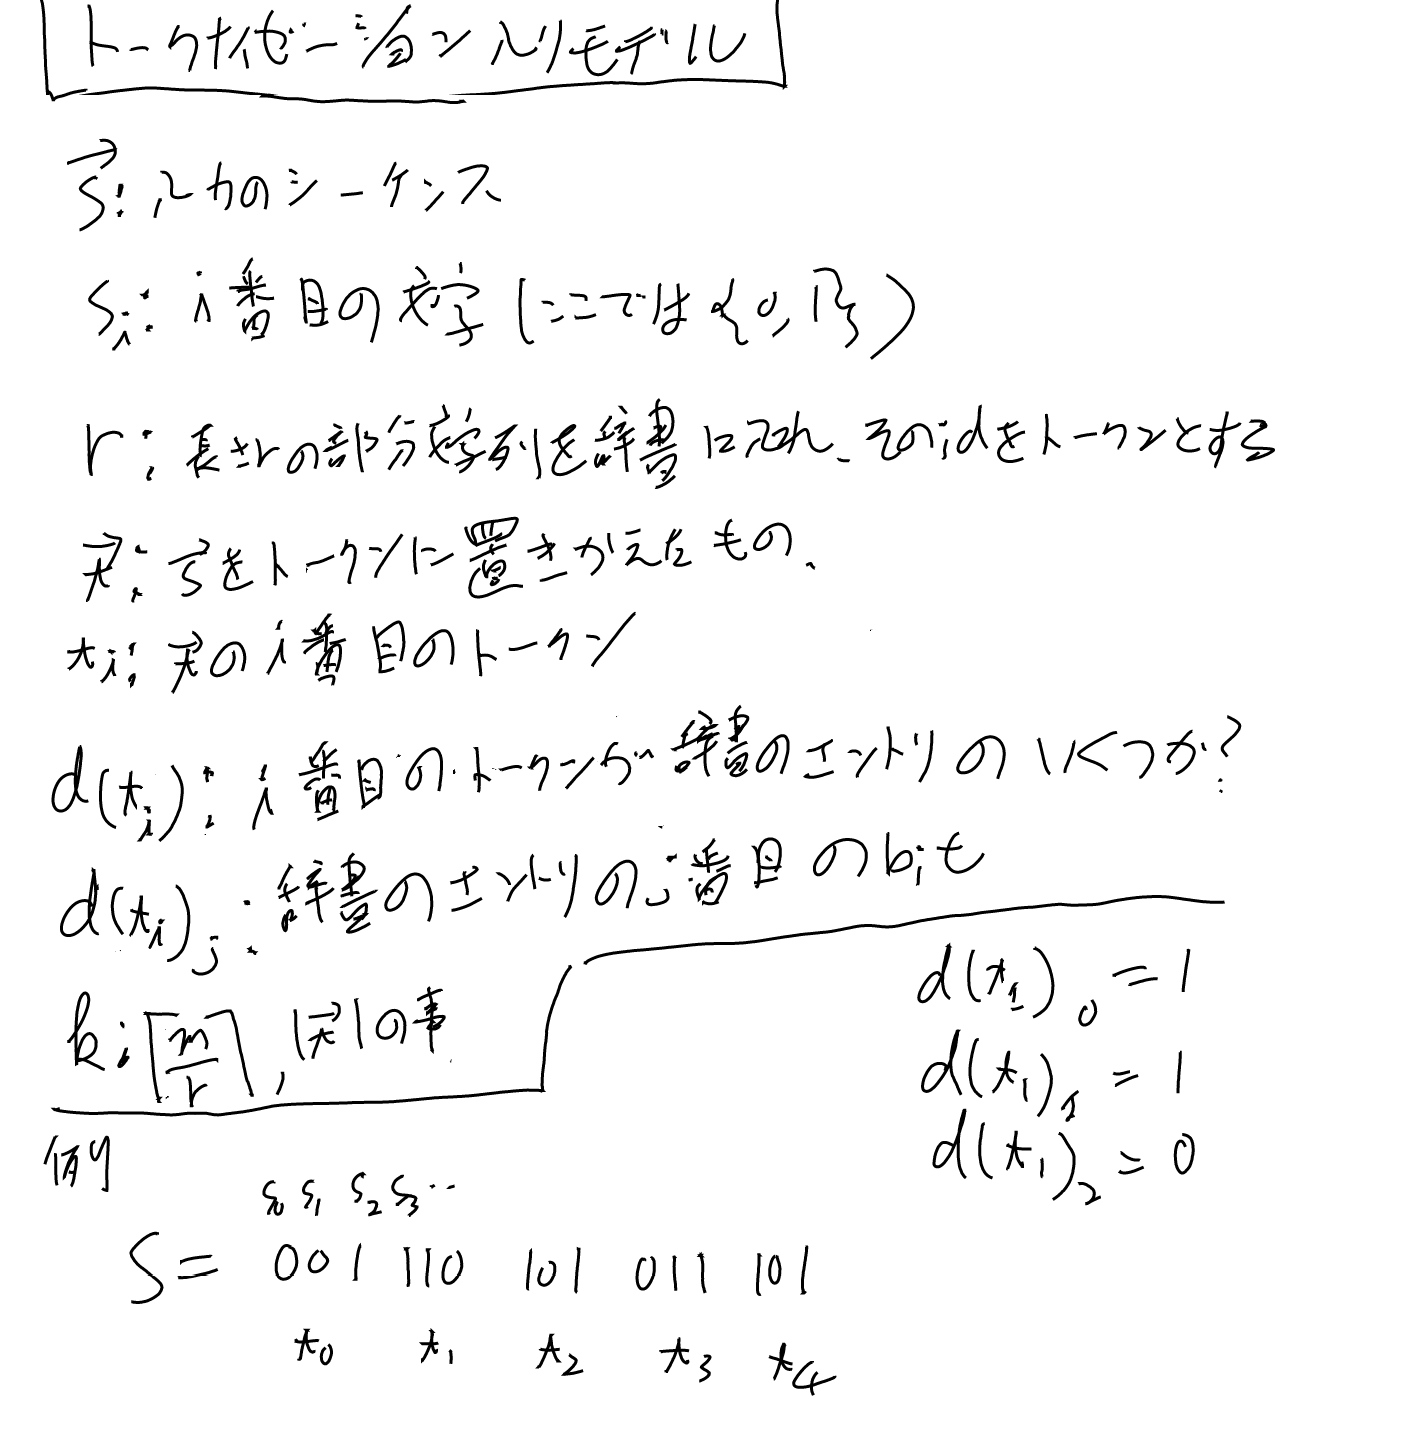 トークナイゼーション入りモデル
s⃗: 入力のシーケンス
sᵢ: i番目の文字 (ここでは {0, 1})
r: 長さrの部分文字列を辞書に入れ、そのidをトークンとする
t⃗: s⃗をトークンに置きかえたもの.
tᵢ: t⃗のi番目のトークン
d(tᵢ): i番目のトークンが辞書のエントリのいくつか?
d(tᵢ)ⱼ: 辞書のエントリのj番目のbit
k: ⌈n/r⌉, |t⃗|の事
d(t₁)₀ = 1
d(t₁)₁ = 1
d(t₁)₂ = 0
例
s₀ s₁ s₂ s₃ ‥
S = 001 110 101 011 101
t₀ t₁ t₂ t₃ t₄